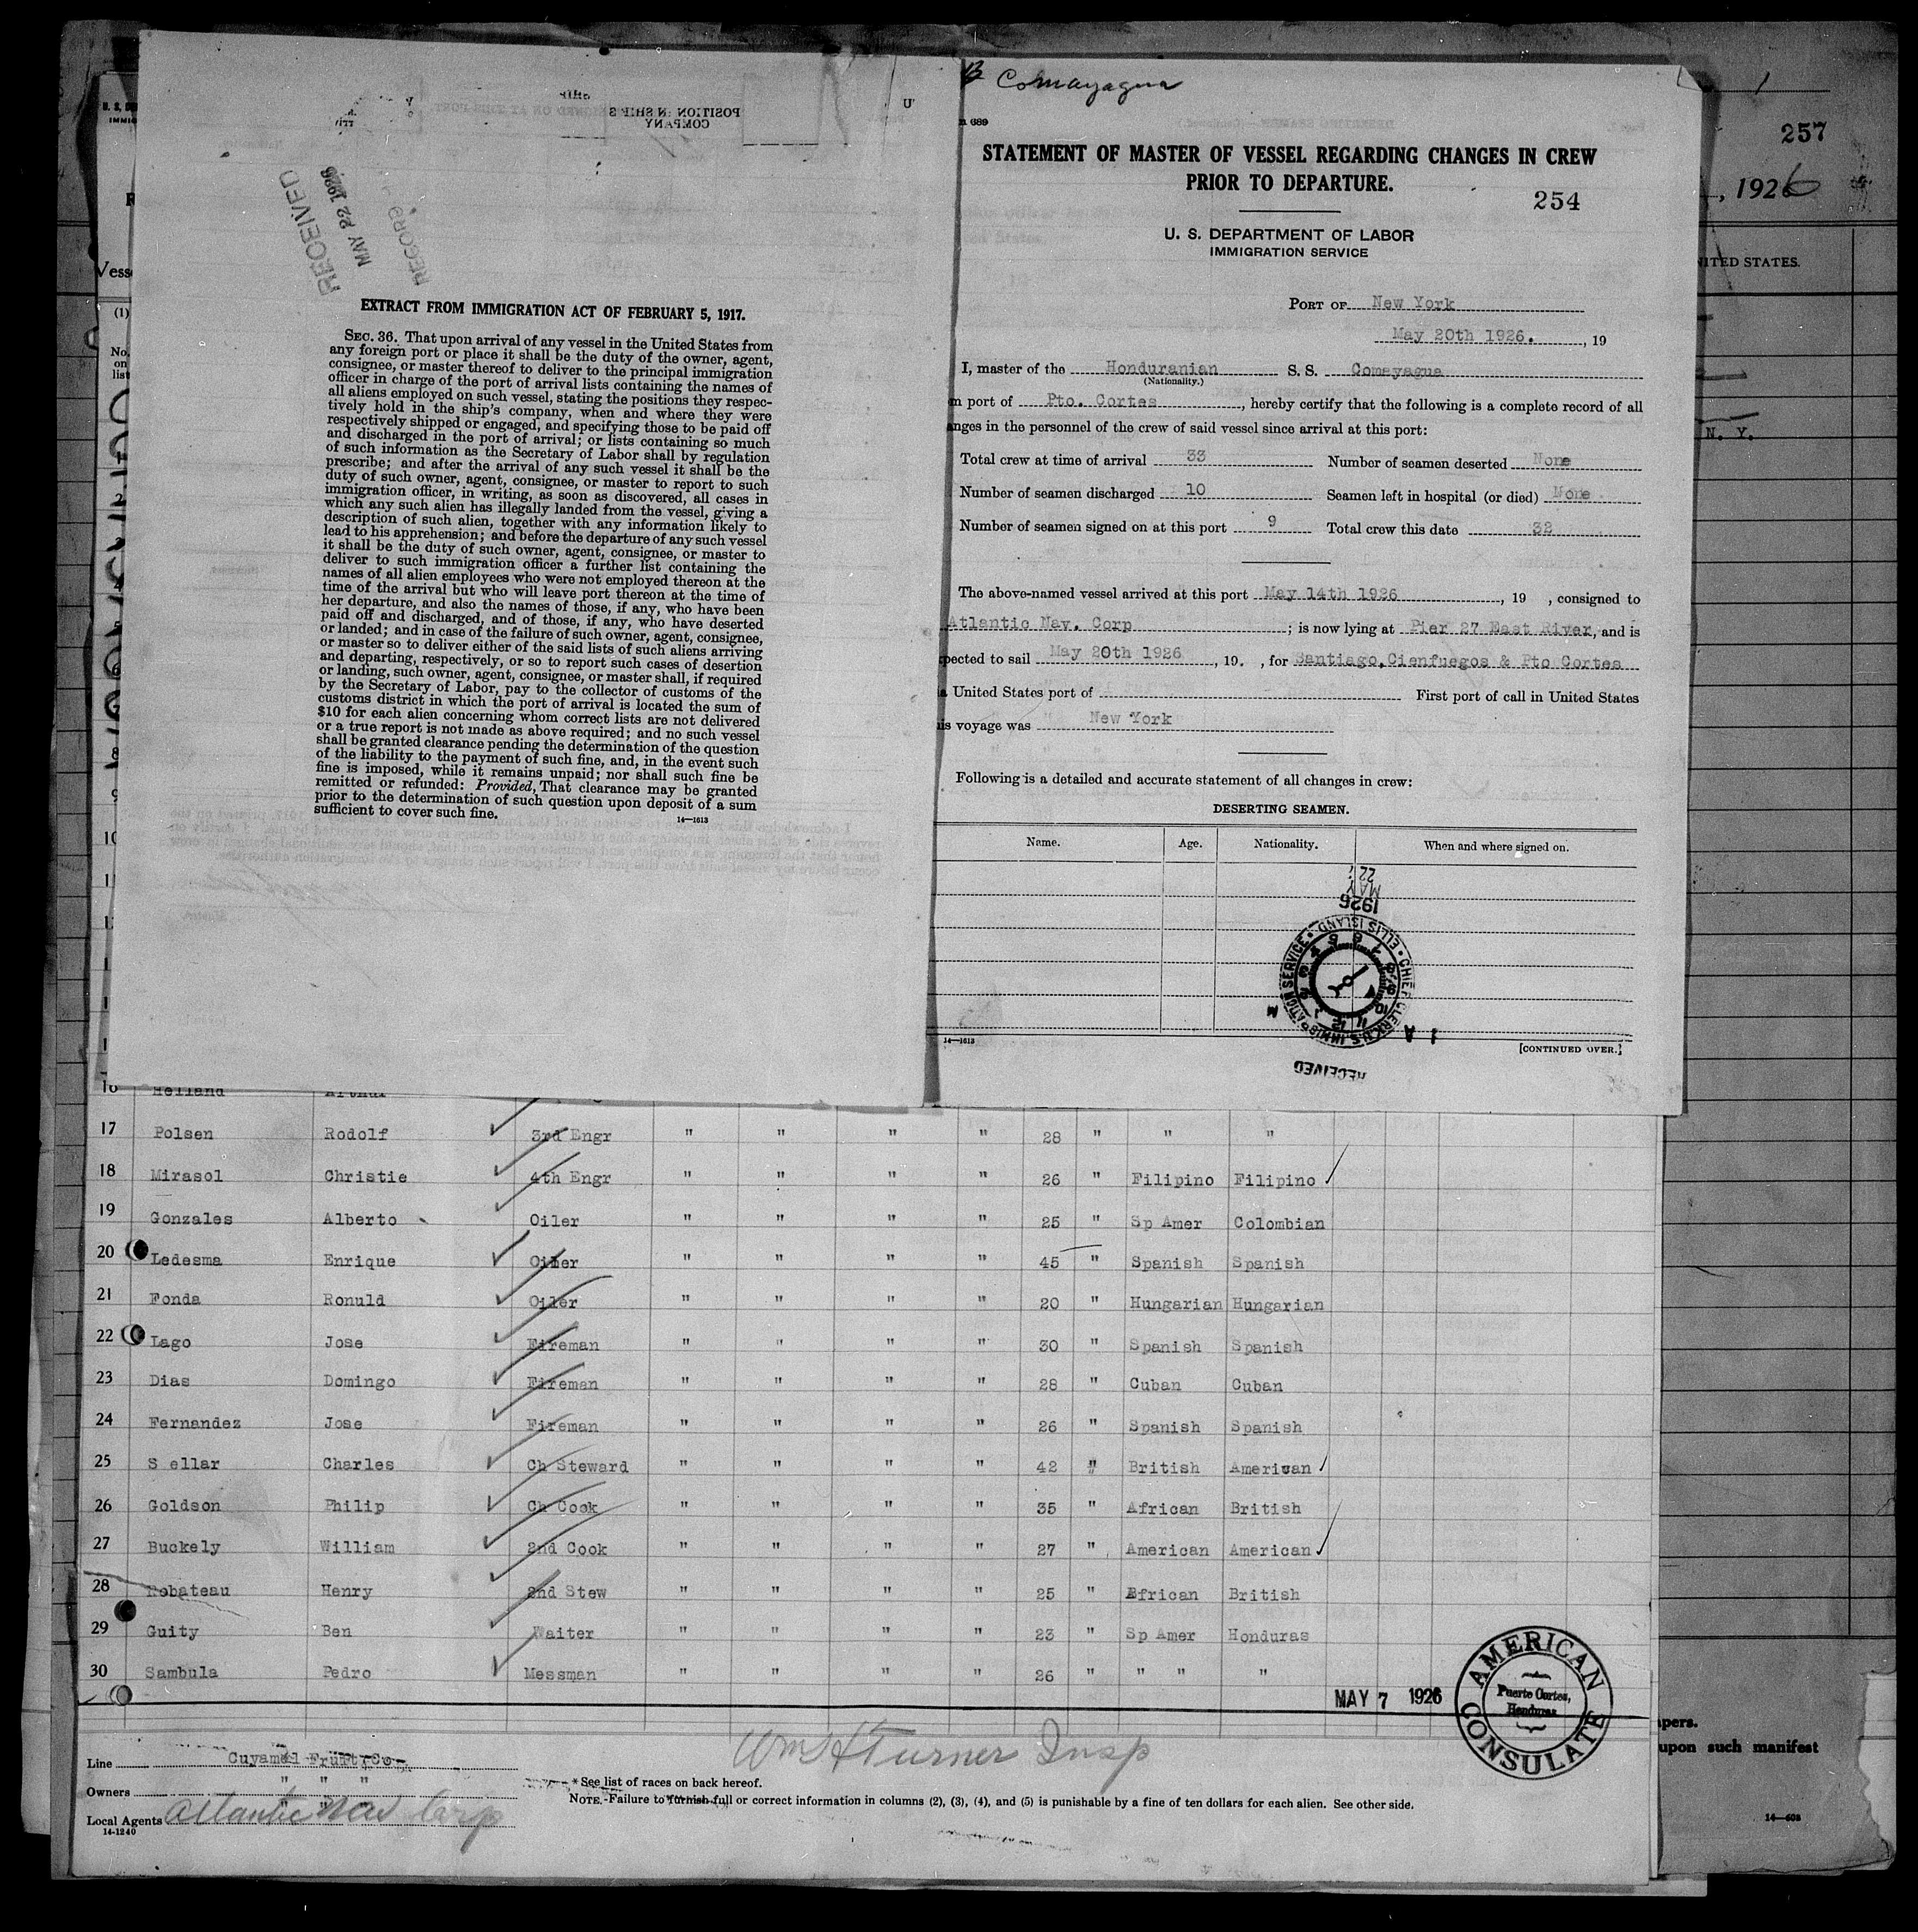 RECEIVED
MAY 22 1926
RECORD
POSITION IN SHIP'S
COMPANY
EXTRACT FROM IMMIGRATION ACT OF FEBRUARY 5, 1917.
SEC. 36. That upon arrival of any vessel in the United States from
any foreign port or place it shall be the duty of the owner, agent,
consignee, or master thereof to deliver to the principal immigration
officer in charge of the port of arrival lists containing the names of
all aliens employed on such vessel, stating the positions they respec-
tively hold in the ship's company, when and where they were
respectively shipped or engaged, and specifying those to be paid off
and discharged in the port of arrival; or lists containing so much
of such information as the Secretary of Labor shall by regulation
prescribe; and after the arrival of any such vessel it shall be the
duty of such owner, agent, consignee, or master to report to such
immigration officer, in writing, as soon as discovered, all cases in
which any such alien has illegally landed from the vessel, giving a
description of such alien, together with any information likely to
lead to his apprehension; and before the departure of any such vessel
it shall be the duty of such owner, agent, consignee, or master to
deliver to such immigration officer a further list containing the
names of all alien employees who were not employed thereon at the
time of the arrival but who will leave port thereon at the time of
her departure, and also the names of those, if any, who have been
paid off and discharged, and of those, if any, who have deserted
or landed; and in case of the failure of such owner, agent, consignee,
or master so to deliver either of the said lists of such aliens arriving
and departing, respectively, or so to report such cases of desertion
or landing, such owner, agent, consignee, or master shall, if required
by the Secretary of Labor, pay to the collector of customs of the
customs district in which the port of arrival is located the sum of
$10 for each alien concerning whom correct lists are not delivered
or a true report is not made as above required; and no such vessel
shall be granted clearance pending the determination of the question
of the liability to the payment of such fine, and, in the event such
fine is imposed, while it remains unpaid; nor shall such fine be
remitted or refunded: Provided, That clearance may be granted
prior to the determination of such question upon deposit of a sum
sufficient to cover such fine.
14—1613
Comayagua
689
STATEMENT OF MASTER OF VESSEL REGARDING CHANGES IN CREW
PRIOR TO DEPARTURE.
254
U. S. DEPARTMENT OF LABOR
IMMIGRATION SERVICE
PORT OF New York
May 20th 1926. , 19
I, master of the Honduranian S. S. Comayagua
(Nationality.)
port of Pto. Cortes , hereby certify that the following is a complete record of all
nges in the personnel of the crew of said vessel since arrival at this port:
Total crew at time of arrival 33 Number of seamen deserted None
Number of seamen discharged 10 Seamen left in hospital (or died) None
Number of seamen signed on at this port 9 Total crew this date 32
The above-named vessel arrived at this port May 14th 1926 , 19 , consigned to
Atlantic Nav. Corp ; is now lying at Pier 27 East River, and is
pected to sail May 20th 1926 , 19. , for Santiago, Cienfuegos & Pto Cortes
United States port of First port of call in United States
is voyage was New York
Following is a detailed and accurate statement of all changes in crew:
DESERTING SEAMEN.
Name. Age. Nationality. When and where signed on.
MAY 22
1926
CHIEF CLERK U.S. IMMIGRATION SERVICE • ELLIS ISLAND •
RECEIVED
14—1613
[CONTINUED OVER.]
257
, 1926
NITED STATES.
N. Y.
Vess
(1)
No.
on
list
16 Helland Arthur
17 Polsen Rodolf 3rd Engr " " " " 28 " " "
18 Mirasol Christie 4th Engr " " " " 26 " Filipino Filipino
19 Gonzales Alberto Oiler " " " " 25 " Sp Amer Colombian
20 Ledesma Enrique Oiler " " " " 45 " Spanish Spanish
21 Fonda Ronuld Oiler " " " " 20 " Hungarian Hungarian
22 Lago Jose Fireman " " " " 30 " Spanish Spanish
23 Dias Domingo Fireman " " " " 28 " Cuban Cuban
24 Fernandez Jose Fireman " " " " 26 " Spanish Spanish
25 S ellar Charles Ch Steward " " " " 42 " British American
26 Goldson Philip Ch Cook " " " " 35 " African British
27 Buckely William 2nd Cook " " " " 27 " American American
28 Robateau Henry 2nd Stew " " " " 25 " African British
29 Guity Ben Waiter " " " " 23 " Sp Amer Honduras
30 Sambula Pedro Messman " " " " 26 " " " "
MAY 7 1926
AMERICAN CONSULATE
Puerto Cortes,
Honduras
Wm H Turner Insp
Line Cuyamel Fruit Co
Owners " " "
Local Agents Atlantic Nav Corp
14-1240
* See list of races on back hereof.
NOTE.-Failure to furnish full or correct information in columns (2), (3), (4), and (5) is punishable by a fine of ten dollars for each alien. See other side.
apers.
upon such manifest
14—608